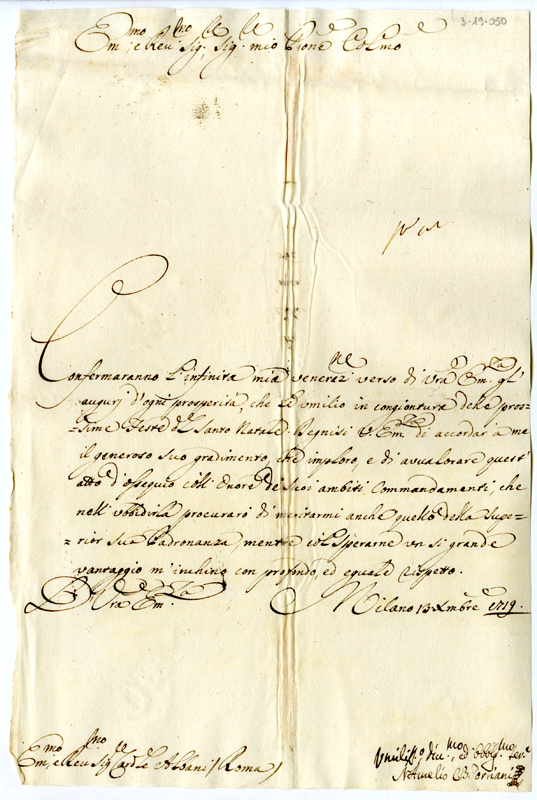 3-19-050
Em.mo e Reu.mo Sig.re Sig.re mio Prone Col.mo
Confermaranno l'infinita mia veneraz.ne verso di Vra Em.za gl'
augurij d'ogni prosperità, che le umilio in congiontura delle pros-
-sime Feste del Santo Natale. Degnisi V. Em.za di accordar a me
il generoso suo gradimento, che imploro, e di avvalorare quest'
atto d'ossequio coll'onore de suoi ambiti Commandamenti, che
nell'vobidirla procurarò di meritarmi anche quello della supe-
-rior sua Padronanza, mentre col sperarne un si grande
vantaggio m'inchino con profondo, ed equale rispetto.
D. Vra Em.za Milano 13 Xmbre 1719.
Em.mo e Reu.mo Sig.re Card.le Albani (Roma)
Vmiliss.o, diu.mo, ed obbg.mo ser.e